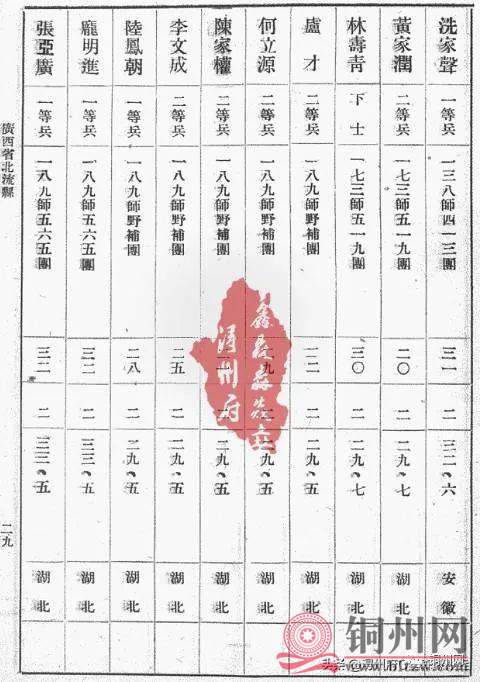 洗家聲 一等兵 一三八師四一三團 三一 二 三二、六 安徽
黃家潤 二等兵 一七三師五一九團 二〇 二 二九、七 湖北
林壽青 下士 一七三師五一九團 三〇 二 二九、七 湖北
盧才 二等兵 一八九師野補團 二二 二 二九、五 湖北
何立源 二等兵 一八九師野補團 二 二九、五 湖北
陳家權 二等兵 一八九師野補團 二 二九、五 湖北
李文成 二等兵 一八九師野補團 二五 二 二九、五 湖北
陸鳳朝 一等兵 一八九師野補團 二八 二 二九、五 湖北
龐明進 一等兵 一八九師五六五團 三二 二 三三、五 湖北
張亞廣 一等兵 一八九師五六五團 三二 二 三三、五 湖北
廣西省北流縣
二九
潯州府
铜州网
头条